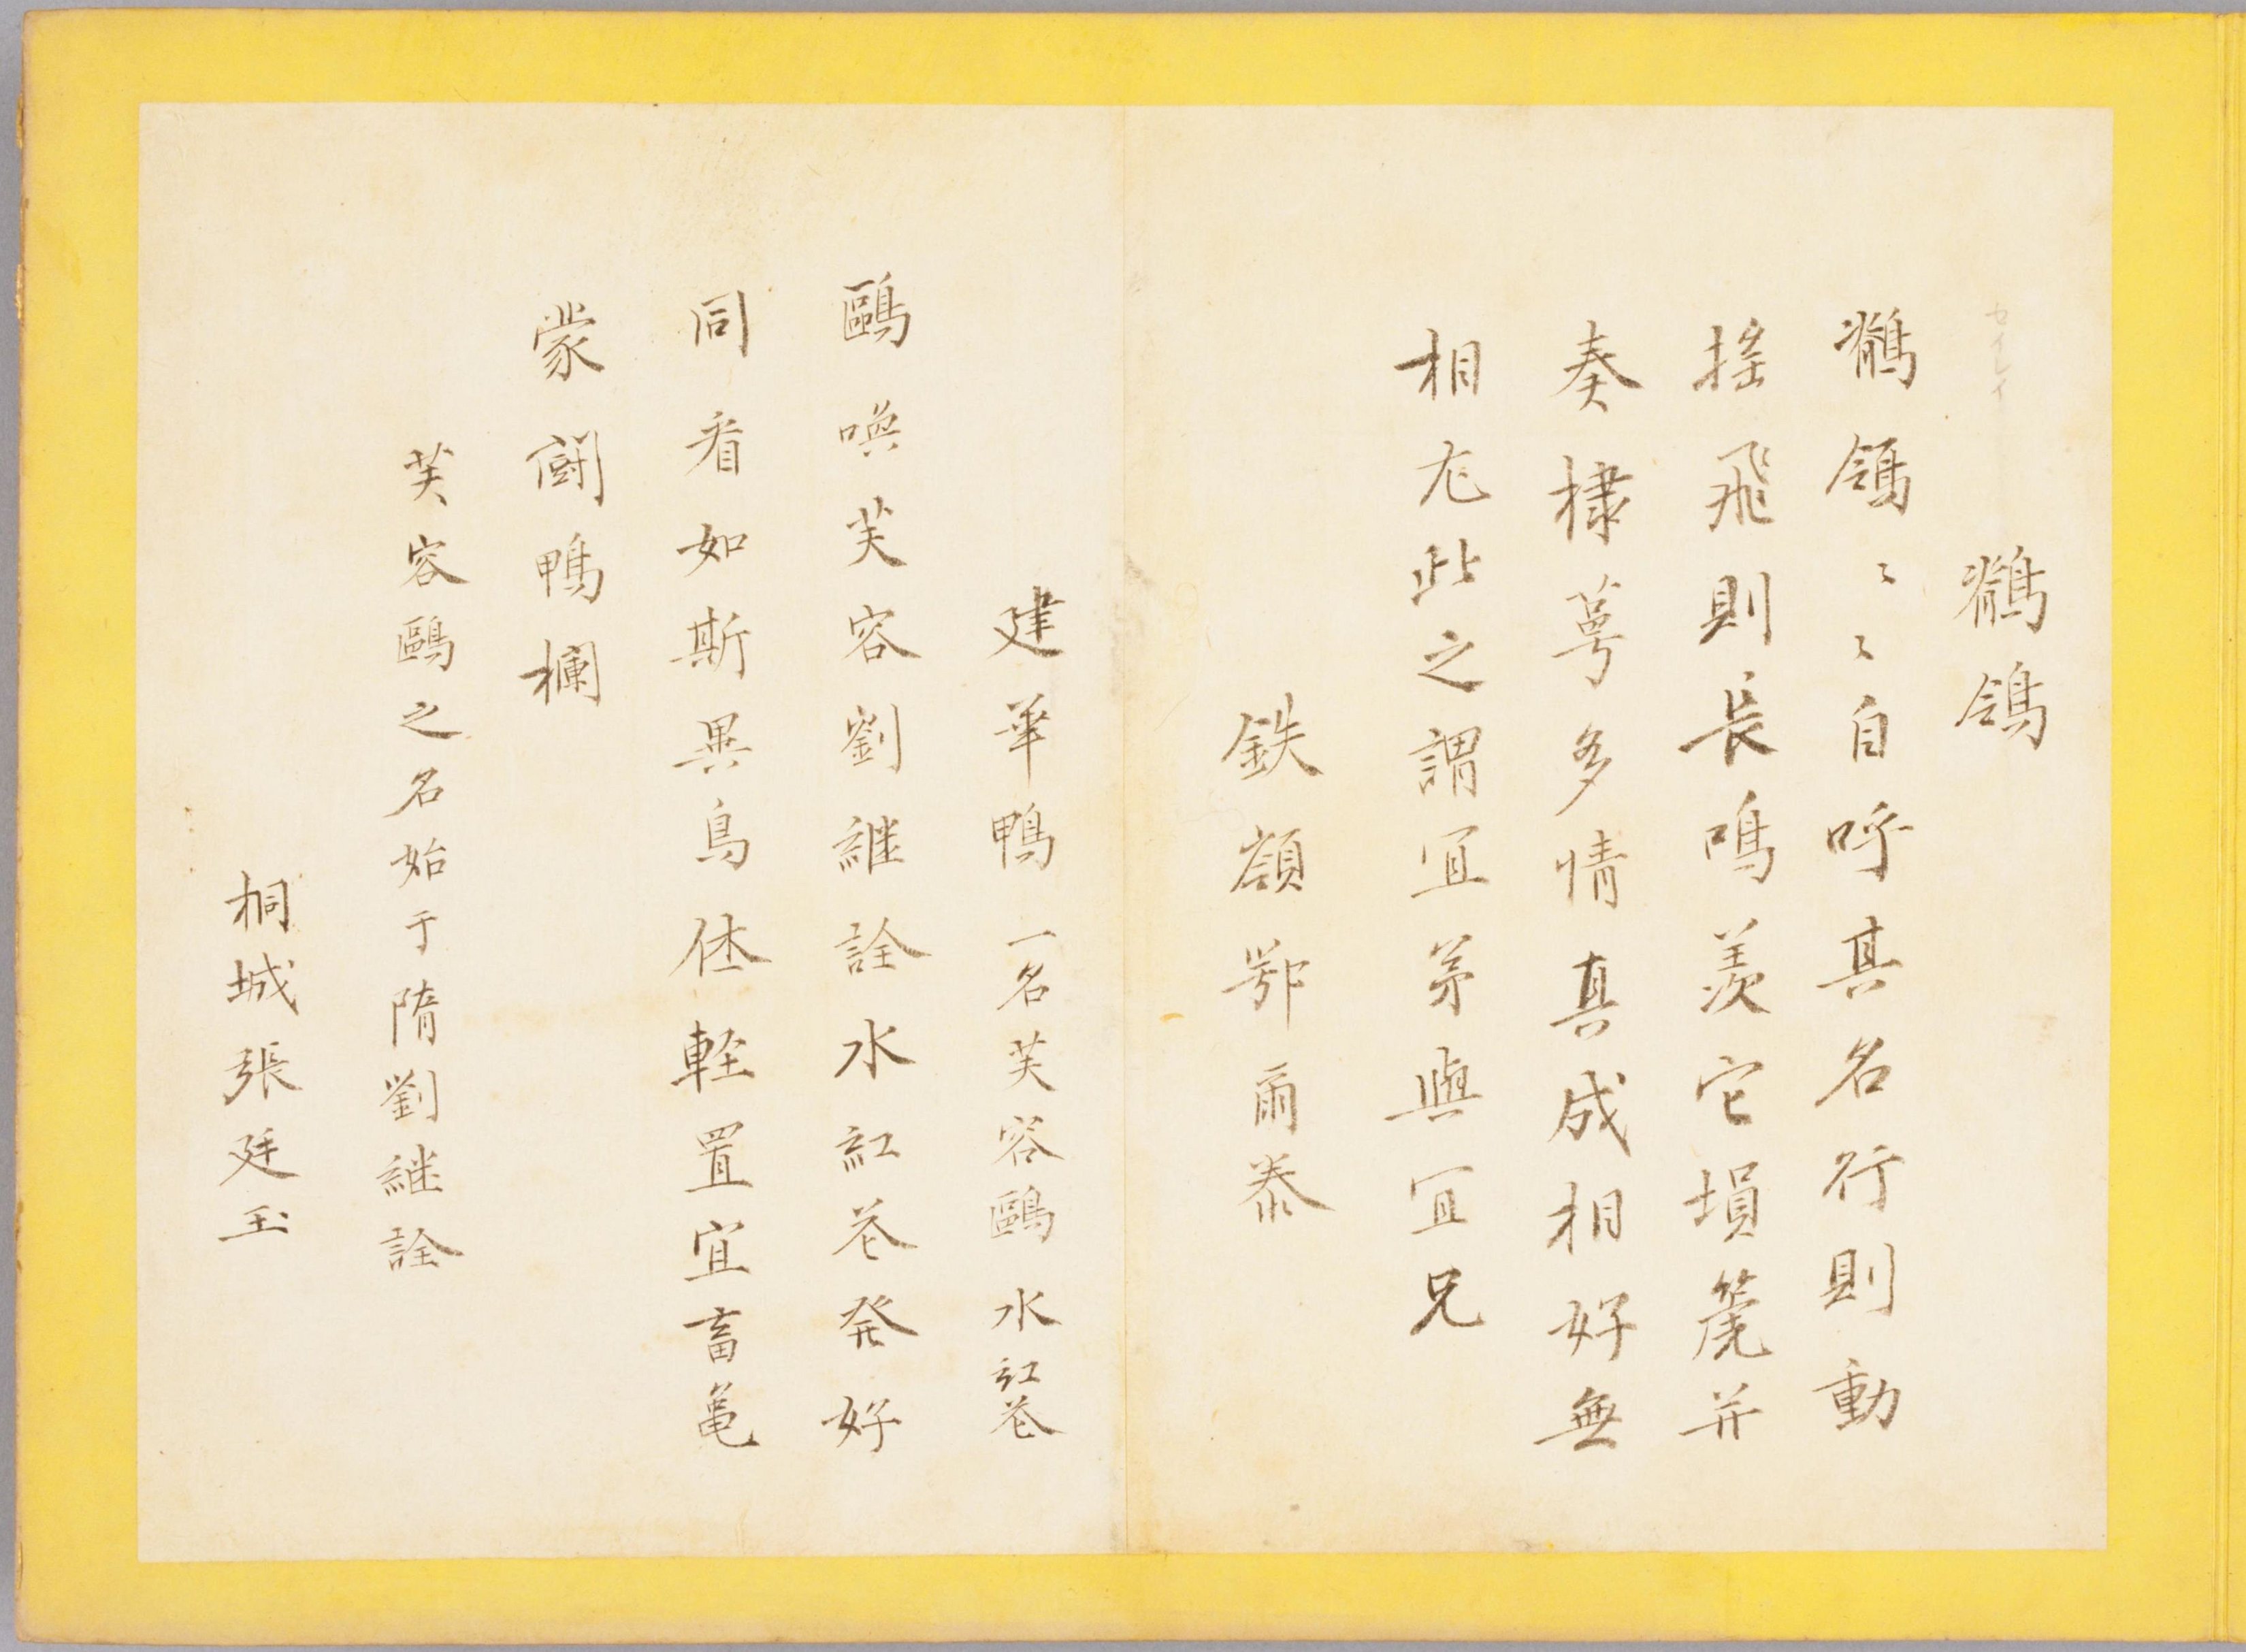 セイレイ
鶺鴒
鶺鴒〻〻自呼其名行則動
揺飛則長鳴羨它塤篪并
奏棣萼多情真成相好無
相尤此之謂宜弟與宜兄
鉄額鄂爾泰
建華鴨 一名芙容鷗 水紅花
鷗喚芙容劉継詮水紅花発好
同看如斯異鳥体軽置宜畜亀
蒙闘鴨欄
芙容鷗之名始于隋劉継詮
桐城張廷玉